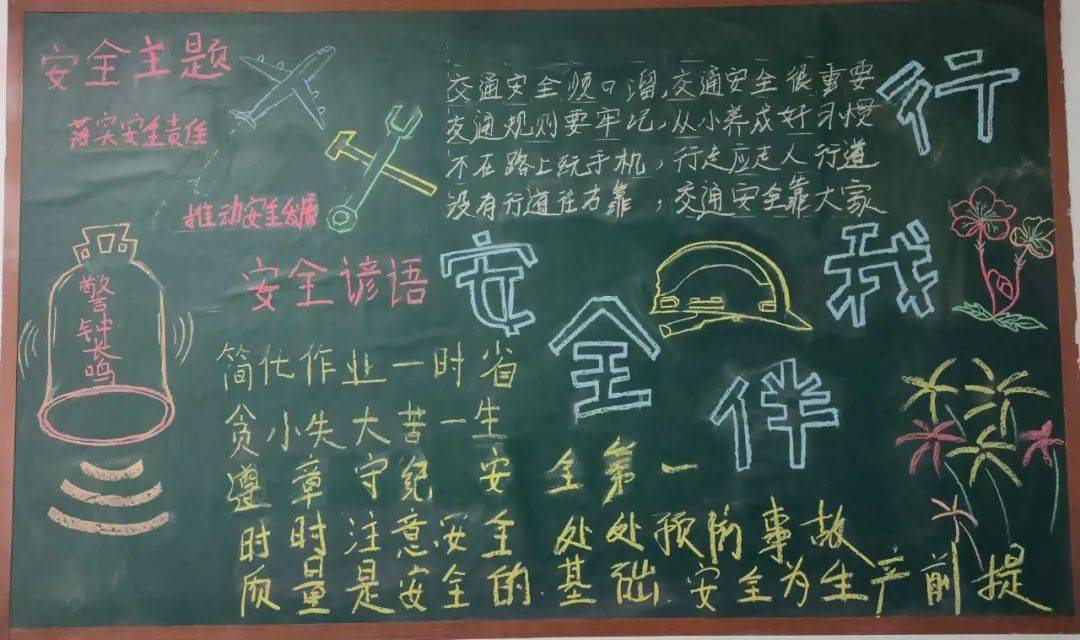 安全主题
落实安全责任
推动安全发展
交通安全顺口溜,交通安全很重要
交通规则要牢记,从小养成好习惯
不在路上玩手机,行走应走人行道
没有行道往右靠,交通安全靠大家
安全伴我行
警钟长鸣
安全谚语
简化作业一时省
贪小失大苦一生
遵章守纪 安全第一
时时注意安全 处处预防事故
质量是安全的基础,安全为生产前提